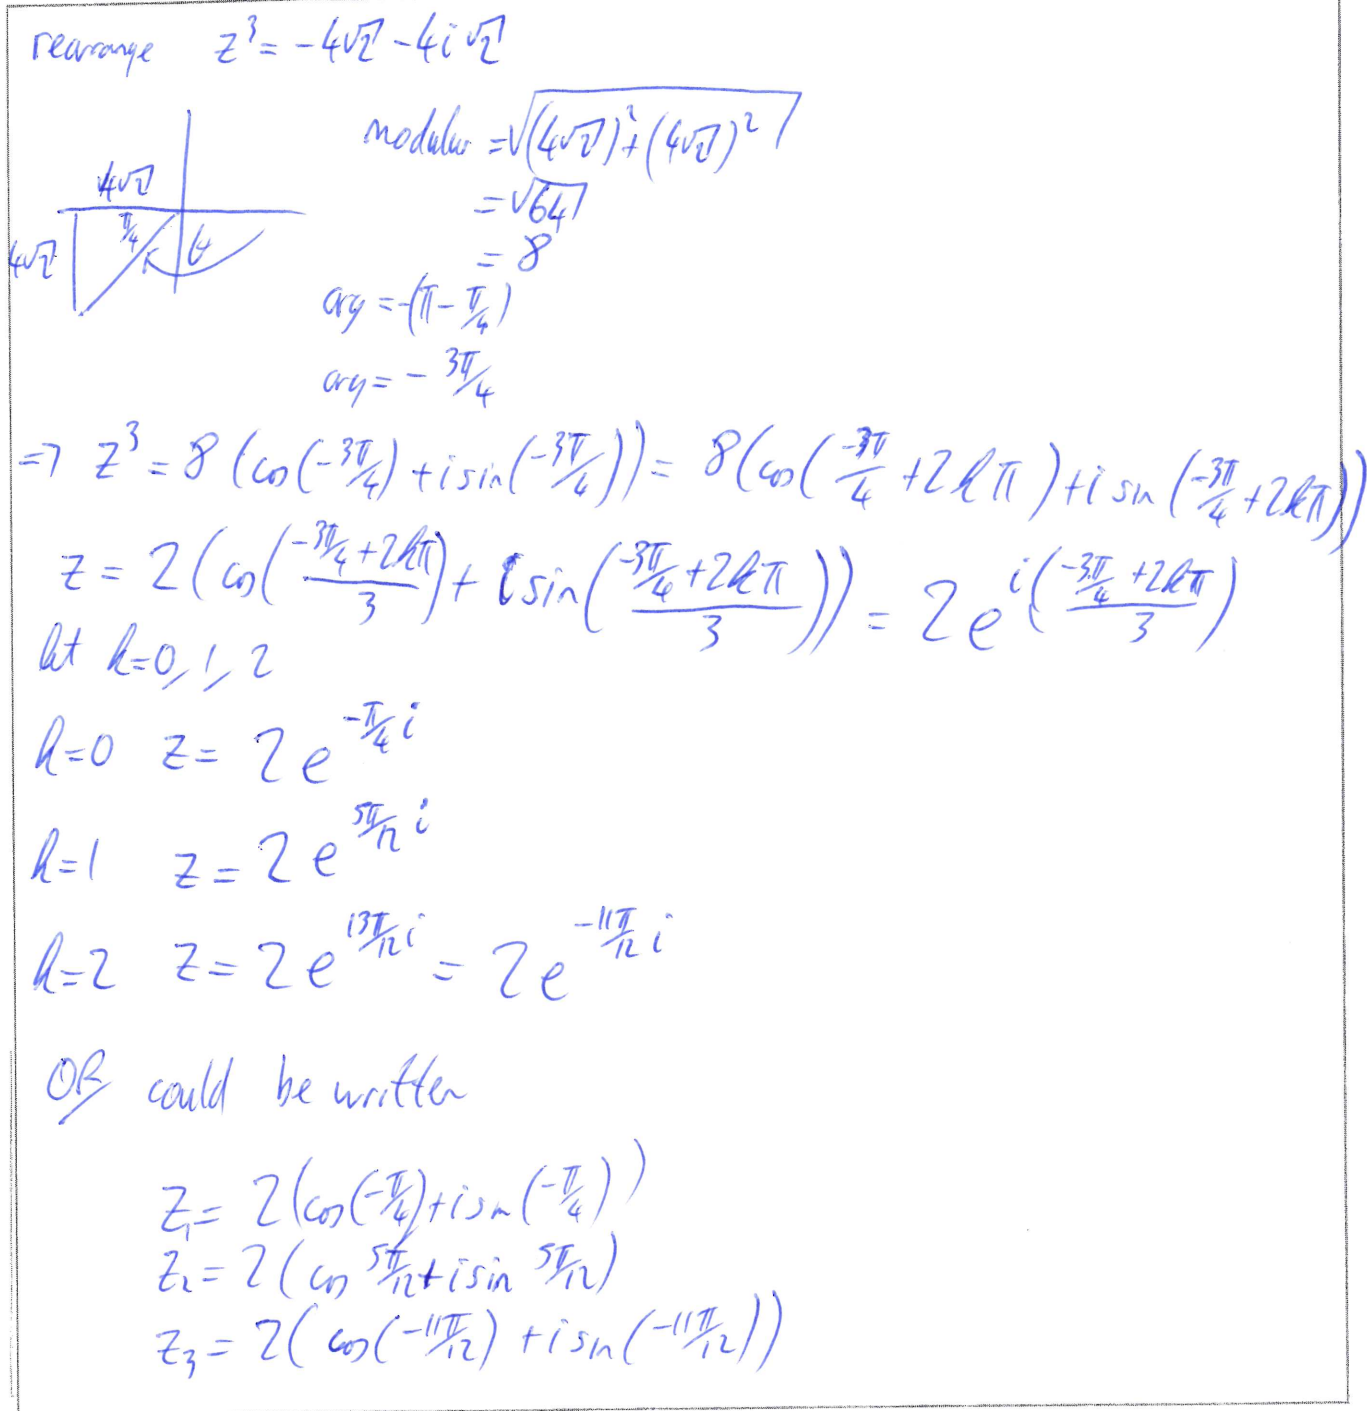 rearrange z³ = -4√2 - 4i√2
modulus = √((4√2)² + (4√2)²)
4√2
= √64
π/4
4√2 θ
= 8
arg = -(π - π/4)
arg = - 3π/4
=> z³ = 8(cos(-3π/4) + i sin(-3π/4)) = 8(cos(-3π/4 + 2kπ) + i sin(-3π/4 + 2kπ))
z = 2(cos((-3π/4 + 2kπ)/3) + i sin((-3π/4 + 2kπ)/3)) = 2e^(i((-3π/4 + 2kπ)/3))
let k=0, 1, 2
k=0 z = 2e^(-π/4 i)
k=1 z = 2e^(5π/12 i)
k=2 z = 2e^(13π/12 i) = 2e^(-11π/12 i)
OR could be written
z₁ = 2(cos(-π/4) + i sin(-π/4))
z₂ = 2(cos 5π/12 + i sin 5π/12)
z₃ = 2(cos(-11π/12) + i sin(-11π/12))